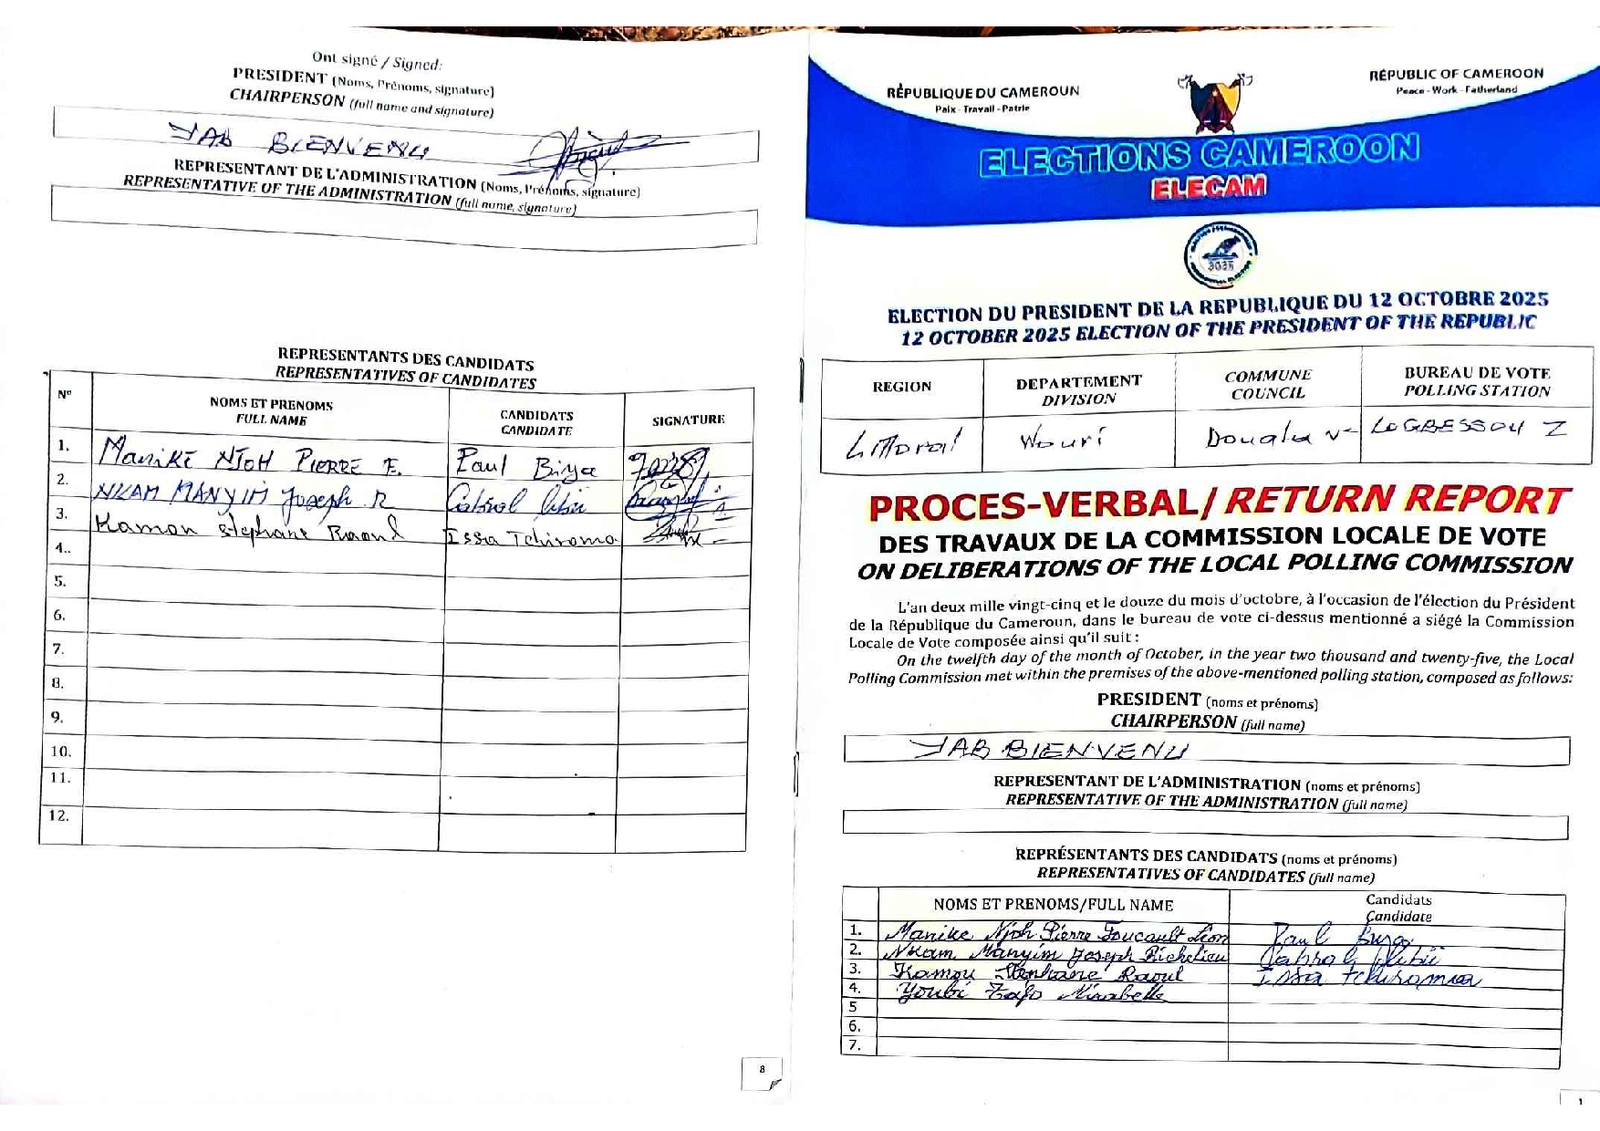 Ont signé / Signed:
PRESIDENT (Noms, Prénoms, signature)
CHAIRPERSON (full name and signature)
YAB BIENVENU
REPRESENTANT DE L'ADMINISTRATION (Noms, Prénoms, signature)
REPRESENTATIVE OF THE ADMINISTRATION (full name, signature)
REPRESENTANTS DES CANDIDATS
REPRESENTATIVES OF CANDIDATES
N° NOMS ET PRENOMS CANDIDATS SIGNATURE
FULL NAME CANDIDATE
1. Manike NJOH PIERRE F. Paul Biya
2. NKAM MANYIM Joseph R Cabral Libii
3. Kamou Stephane Raoul Issa Tchiroma
4..
5.
6.
7.
8.
9.
10.
11.
12.
8
RÉPUBLIQUE DU CAMEROUN
Paix - Travail - Patrie
RÉPUBLIC OF CAMEROON
Peace - Work - Fatherland
ELECTIONS CAMEROON
ELECAM
2025
ELECTION DU PRESIDENT DE LA REPUBLIQUE DU 12 OCTOBRE 2025
12 OCTOBER 2025 ELECTION OF THE PRESIDENT OF THE REPUBLIC
REGION DEPARTEMENT COMMUNE BUREAU DE VOTE
DIVISION COUNCIL POLLING STATION
Littoral Wouri Douala V- LOGBESSOU Z
PROCES-VERBAL/ RETURN REPORT
DES TRAVAUX DE LA COMMISSION LOCALE DE VOTE
ON DELIBERATIONS OF THE LOCAL POLLING COMMISSION
L'an deux mille vingt-cinq et le douze du mois d'octobre, à l'occasion de l'élection du Président
de la République du Cameroun, dans le bureau de vote ci-dessus mentionné a siégé la Commission
Locale de Vote composée ainsi qu'il suit :
On the twelfth day of the month of October, in the year two thousand and twenty-five, the Local
Polling Commission met within the premises of the above-mentioned polling station, composed as follows:
PRESIDENT (noms et prénoms)
CHAIRPERSON (full name)
YAB BIENVENU
REPRESENTANT DE L'ADMINISTRATION (noms et prénoms)
REPRESENTATIVE OF THE ADMINISTRATION (full name)
REPRÉSENTANTS DES CANDIDATS (noms et prénoms)
REPRESENTATIVES OF CANDIDATES (full name)
NOMS ET PRENOMS/FULL NAME Candidats
Candidate
1. Manike Njoh Pierre Foucault Léon Paul Biya
2. Nkam Manyim Joseph Richelieu Cabral Libii
3. Kamou Stephane Raoul Issa tchiroma
4. Youbi Mirabelle
5
6.
7.
1